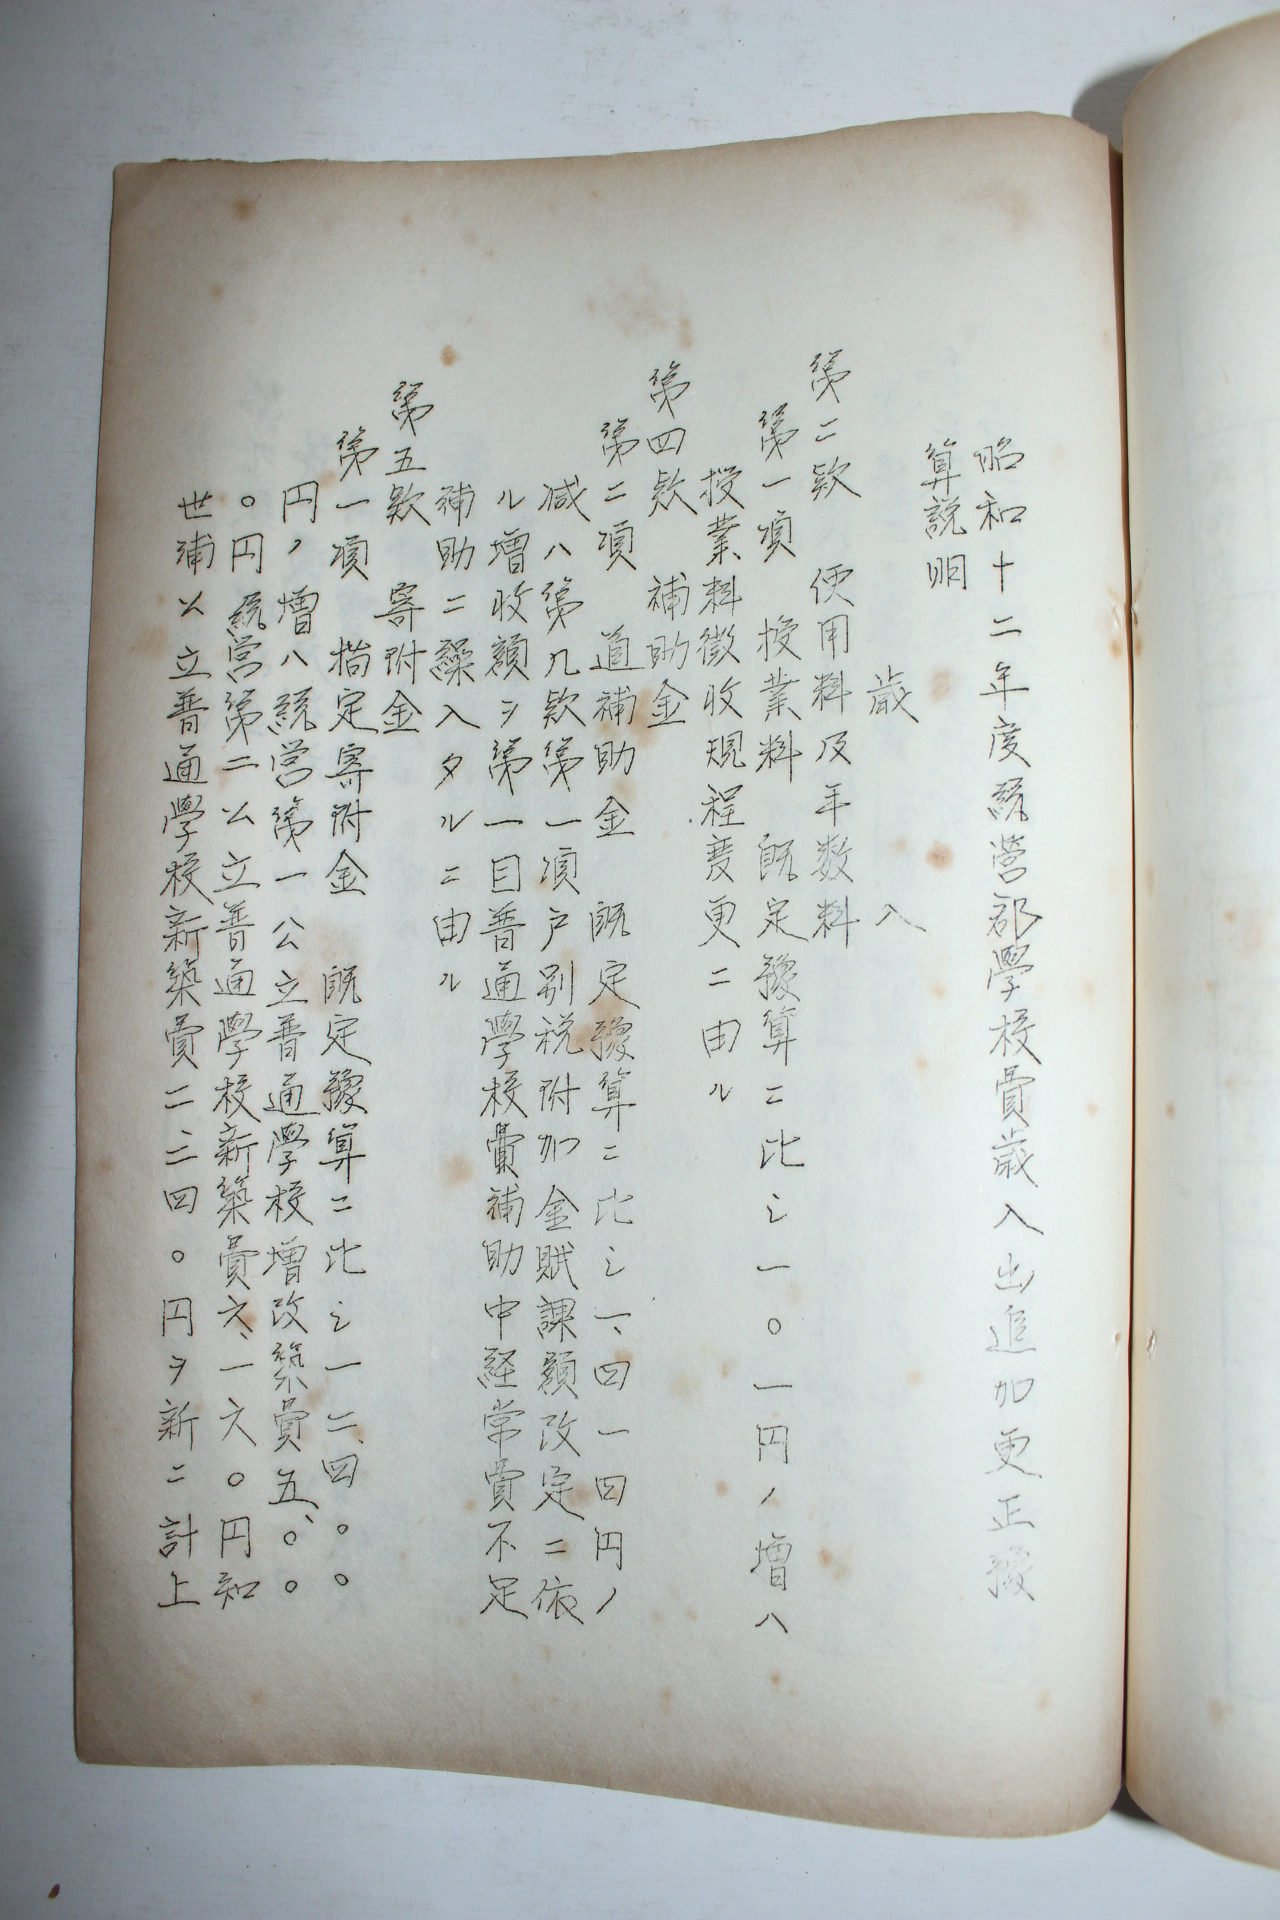 昭和十二年度統営郡學校費歳入出追加更正豫
算説明
歳入
第二款 使用料及手数料
第一項 授業料 既定豫算ニ比シ一〇一円ノ増ハ
授業料徴收規程変更ニ由ル
第四款 補助金
第二項 道補助金 既定豫算ニ比シ一、四一四円ノ
減ハ第九款第一項戸別税附加金賦課額改定ニ依
ル増收額ヲ第一目普通學校費補助中経常費不足
補助ニ繰入タルニ由ル
第五款 寄附金
第一項 指定寄附金 既定豫算ニ比シ一二、四〇〇
円ノ増ハ統営第一公立普通學校増改築費五、〇〇
〇円統営第二公立普通學校新築費六、一六〇円知
世浦公立普通學校新築費二、二四〇円ヲ新ニ計上